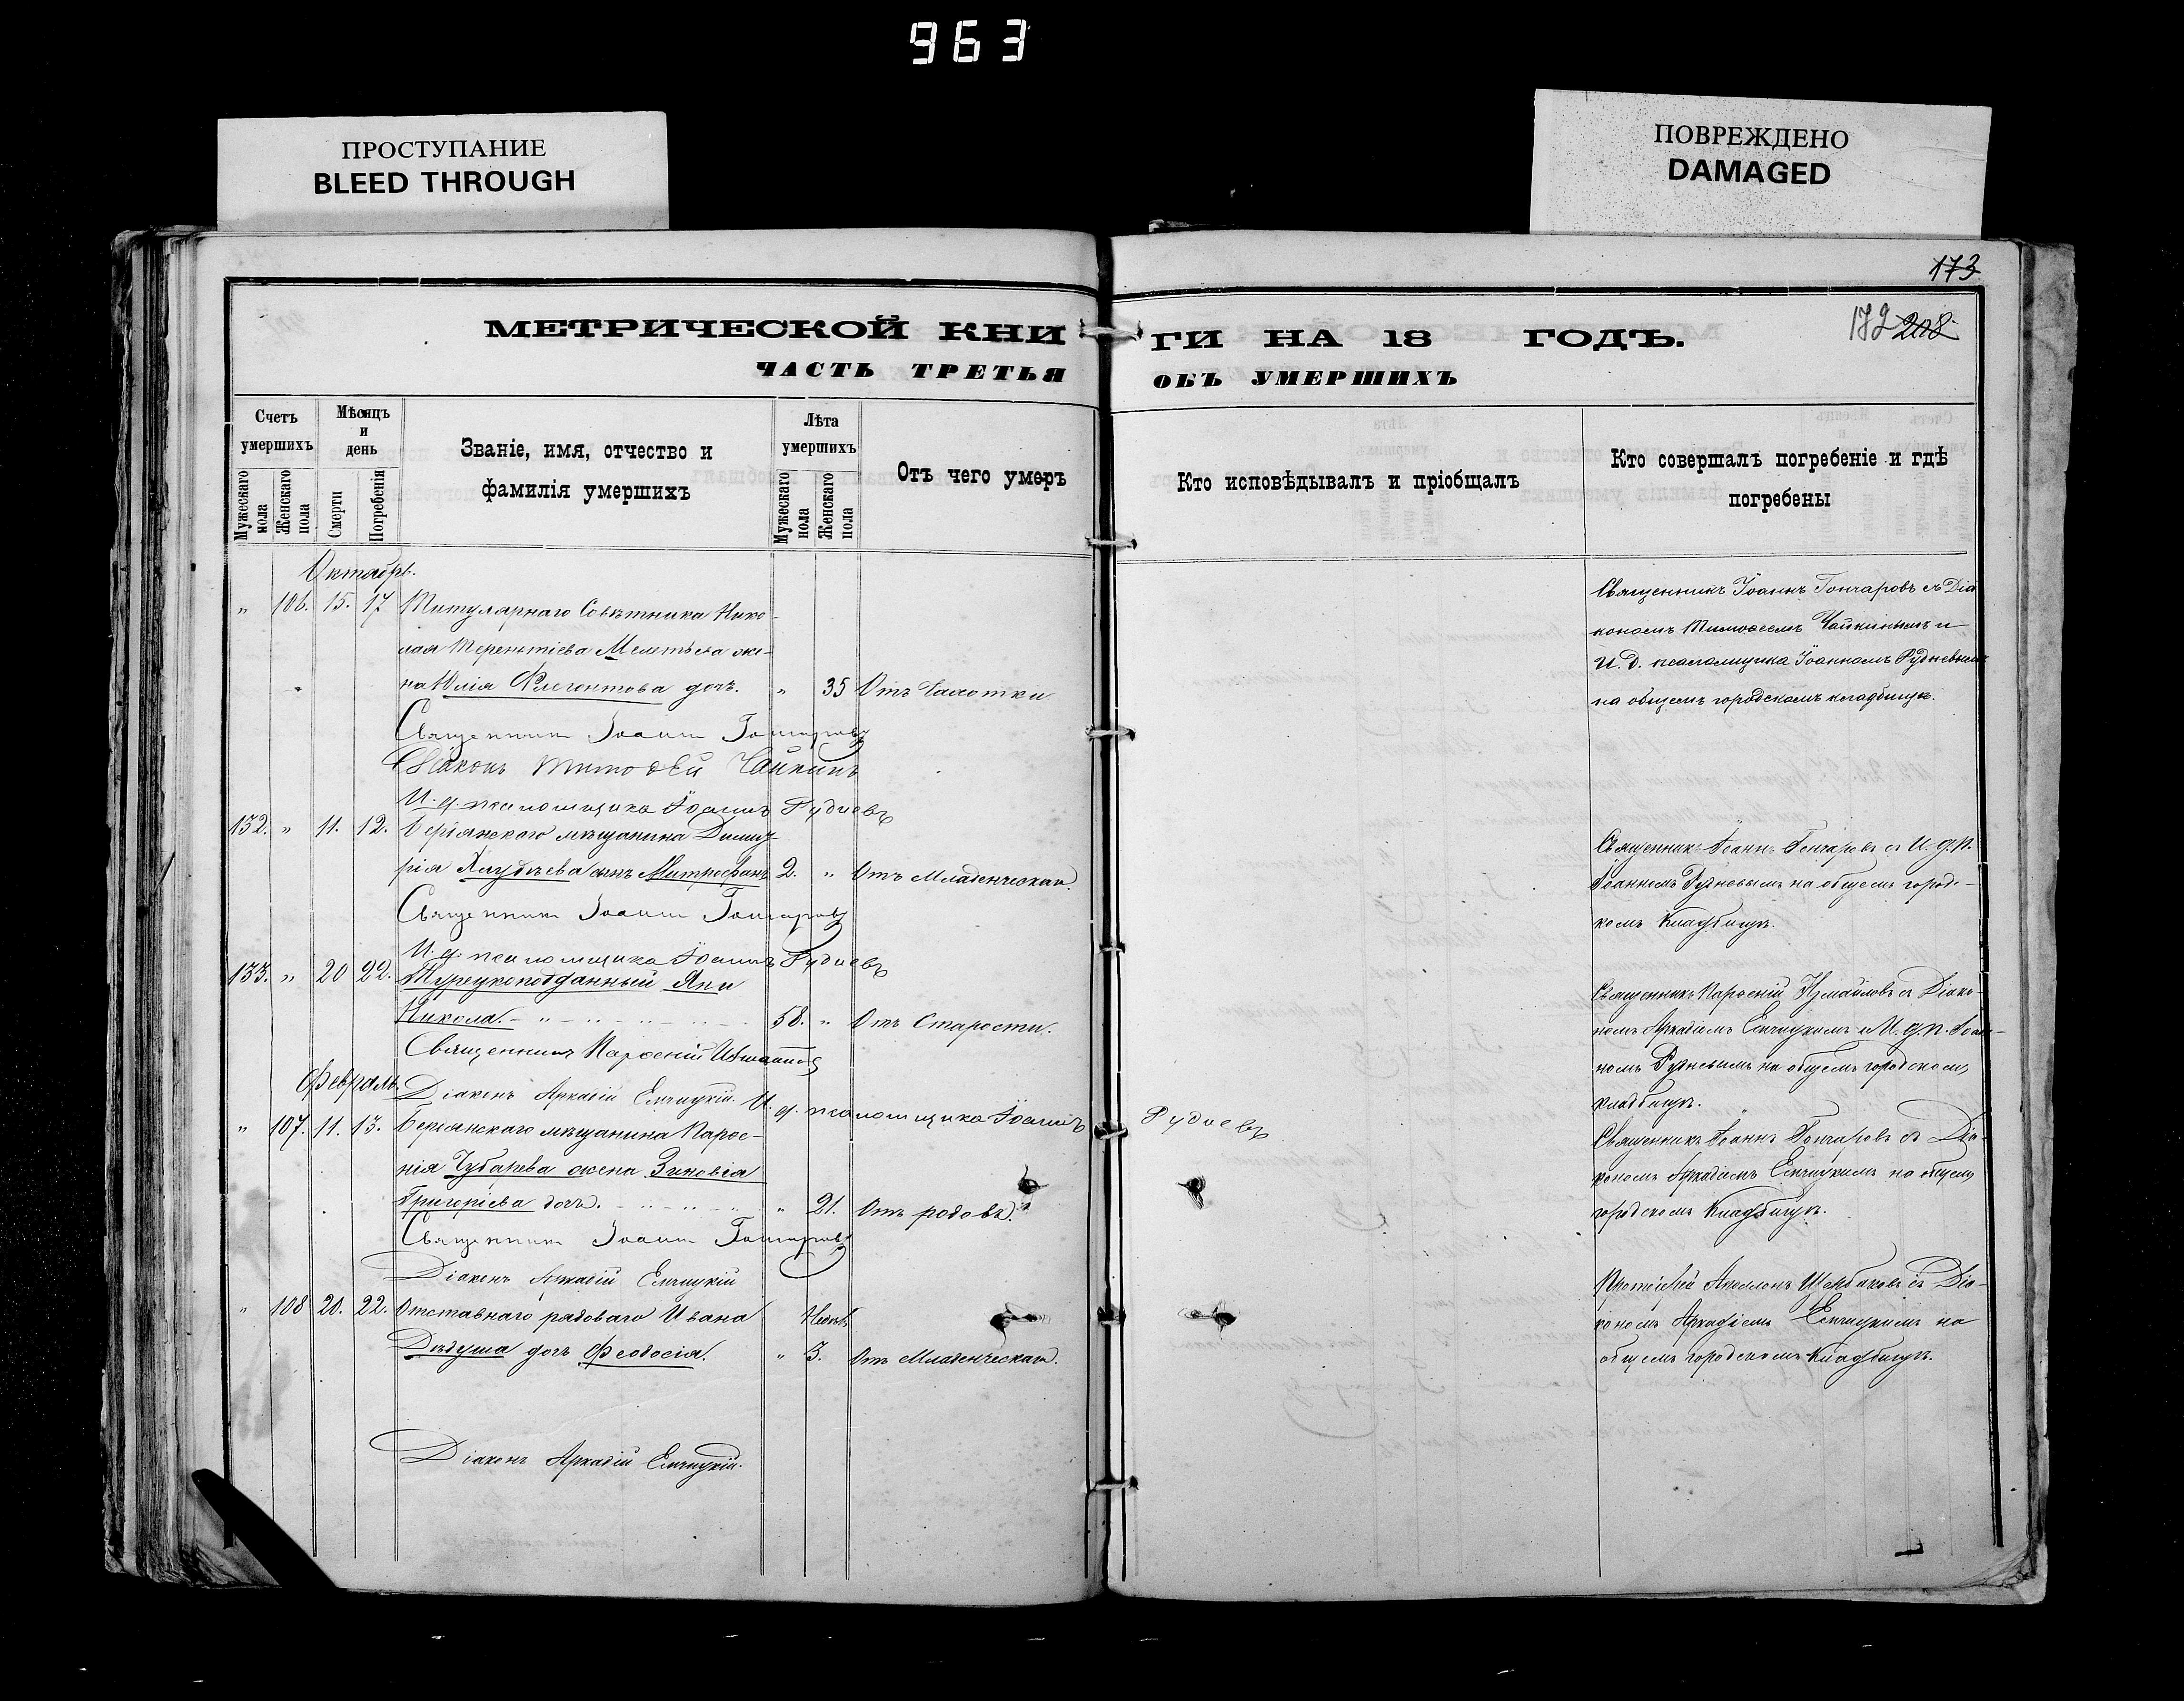 963
ПРОСТУПАНИЕ
BLEED THROUGH
ПОВРЕЖДЕНО
DAMAGED
173
172 208
МЕТРИЧЕСКОЙ КНИ
ГИ НА 18 ГОДЪ.
ЧАСТЬ ТРЕТЬЯ
ОБЪ УМЕРШИХЪ
Счетъ умершихъ
Мужескаго пола
Женскаго пола
Мѣсяцъ и день
Смерти
Погребенія
Званіе, имя, отчество и фамилія умершихъ
Лѣта умершихъ
Мужескаго пола
Женскаго пола
Отъ чего умеръ
Кто исповѣдывалъ и пріобщалъ
Кто совершалъ погребеніе и гдѣ погребены
Октябрь.
" 106. 15. 17 Титулярнаго Совѣтника Нико-
лая Терентіева же-
на Юлія Флегонтова дочь. " 35 Отъ Чахотки
Священникъ Іоаннъ Гончаровъ съ Діа
кономъ Тимоѳеемъ Чайкинымъ и
И. Д. псаломщика Іоанномъ Рудневымъ
на общемъ городскомъ кладбищѣ.
Священникъ Іоаннъ Гончаровъ
Діаконъ Тимоѳей Чайкинъ
И. д. псаломщика Іоаннъ Рудневъ
132. " 11. 12. Бердянскаго мѣщанина Димит
рія сынъ Митрофанъ 2. " Отъ Младенческой.
Священникъ Іоаннъ Гончаровъ съ И. д. п.
Іоанномъ Рудневымъ на общемъ городс-
комъ Кладбищѣ.
Священникъ Іоаннъ Гончаровъ
И. д. псаломщика Іоаннъ Рудневъ
133. " 20 22. Турецкоподданный Яни
Никола. 58. " Отъ Старости.
Священникъ Парѳеній Измайловъ съ Діако-
номъ Аркадіемъ и И. д. п. Іоан-
номъ Рудневымъ на общемъ городскомъ
кладбищѣ.
Священникъ Парѳеній Измайловъ
Февраль.
Діаконъ Аркадій
И. д. псаломщика Іоаннъ Рудневъ
" 107. 11. 13. Бердянскаго мѣщанина Парѳе-
нія Чубарева жена Зиновія
Григоріева дочь. " 21. Отъ родовъ.
Священникъ Іоаннъ Гончаровъ съ Діа-
кономъ Аркадіемъ на общемъ
городскомъ Кладбищѣ.
Священникъ Іоаннъ Гончаровъ
Діаконъ Аркадій
" 108 20. 22. Отставнаго рядоваго Ивана Недѣль
дочь Феодосія. " 3. Отъ Младенческой.
Протоіерей съ Діа-
кономъ Аркадіемъ на
общемъ городскомъ Кладбищѣ.
Діаконъ Аркадій